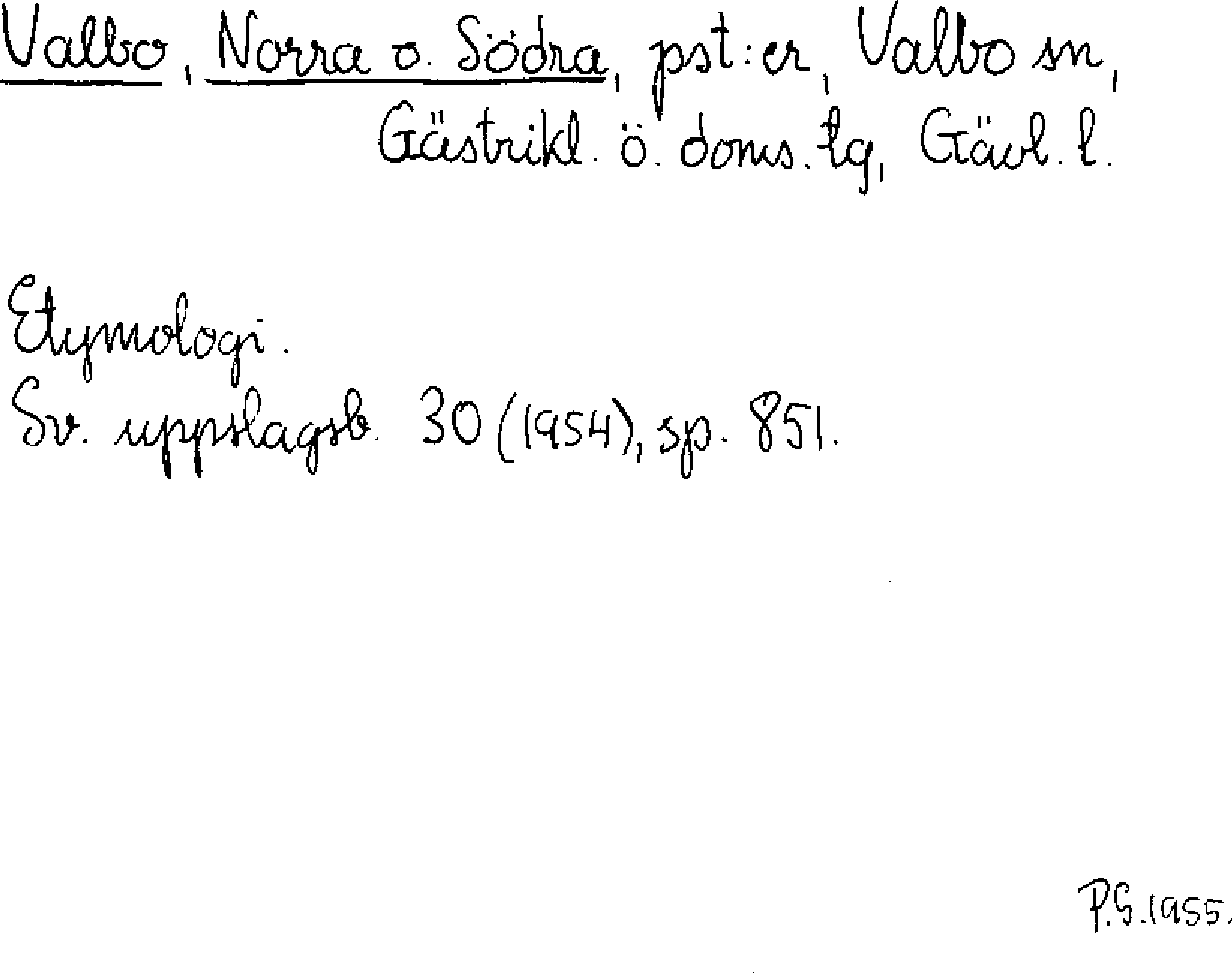 Valbo, Norra o. Södra, pst:er, Valbo sn,
Gästrikl. ö. doms. tg, Gävl. l.
Etymologi.
Sv. uppslagsb. 30 (1954), sp. 851.
P.G. 1955.